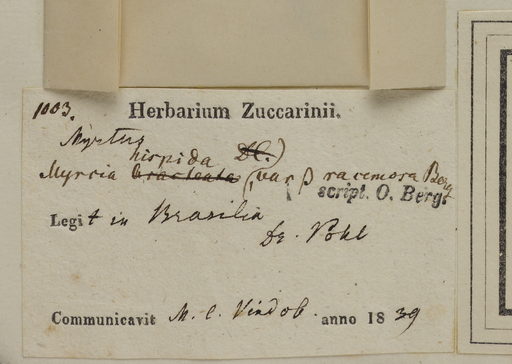 1003. Herbarium Zuccarinii.
Myrtus
hispida DC.)
Myrcia bracteata (var β racemosa Berg
script. O. Berg.
Legit in Brasilia
Dr. Pohl
Communicavit M. C. Vindob. anno 1839